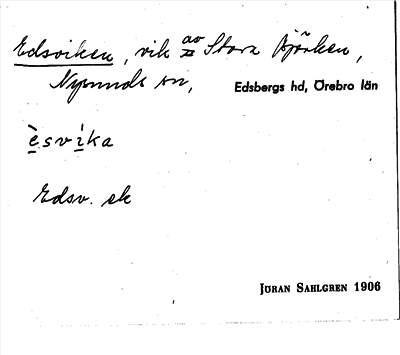 Edsviken, vik av Stora Björken,
Nysunds sn, Edsbergs hd, Örebro län
èsvìka
Edsv. ek
JÖRAN SAHLGREN 1906